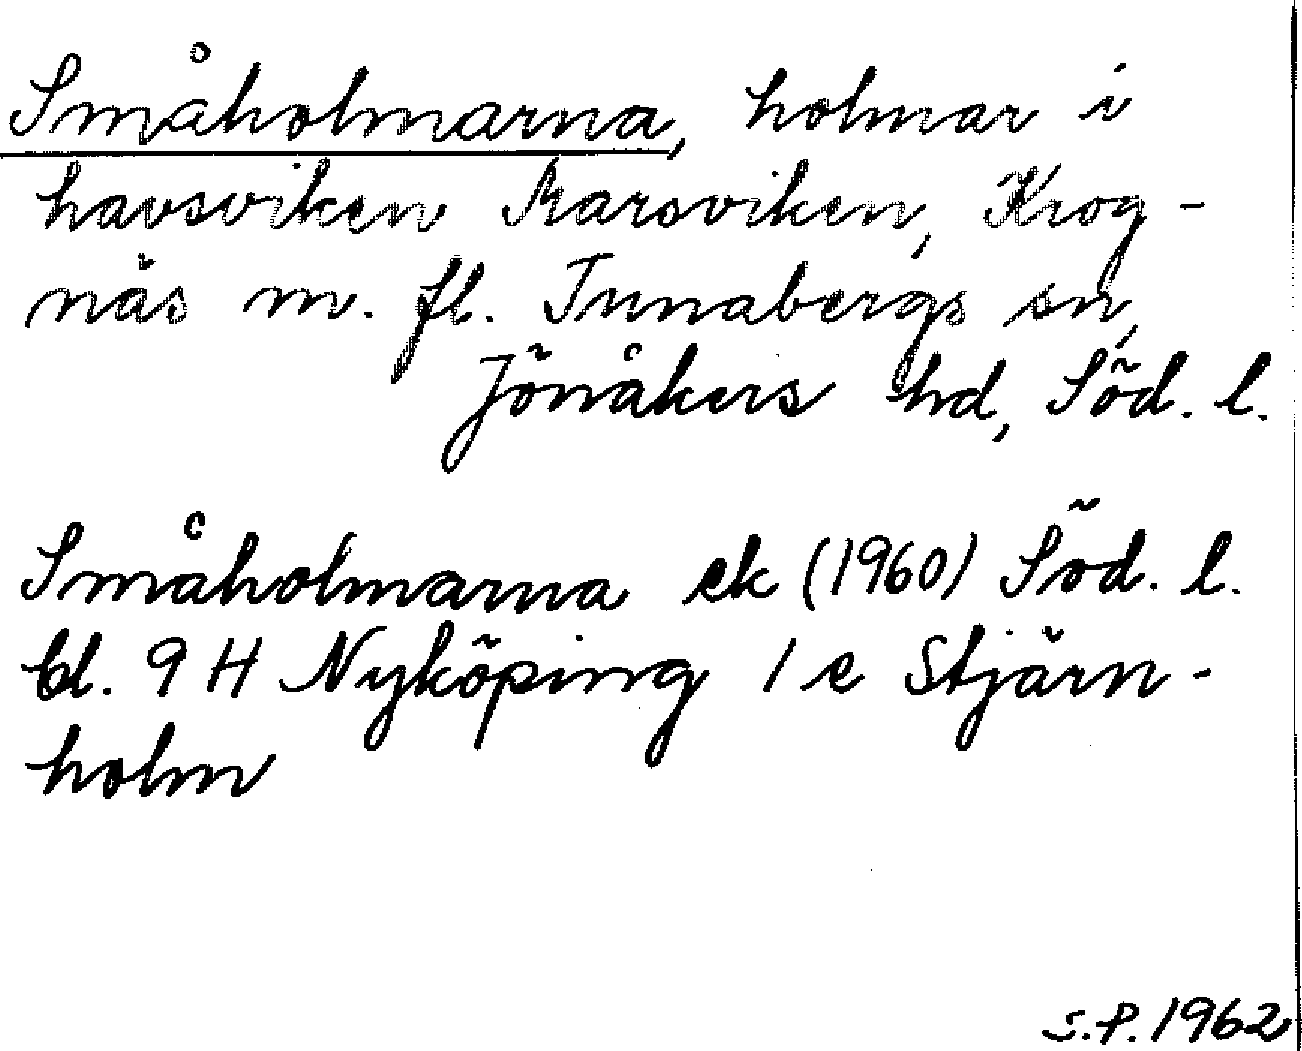 Småholmarna, holmar i
havsviken Marsviken, Krog-
näs m. fl. Tunabergs sn,
Jönåkers hd, Söd. l.
Småholmarna ek (1960) Söd. l.
bl. 9 H Nyköping 1 e Stjärn-
holm
S.P. 1962